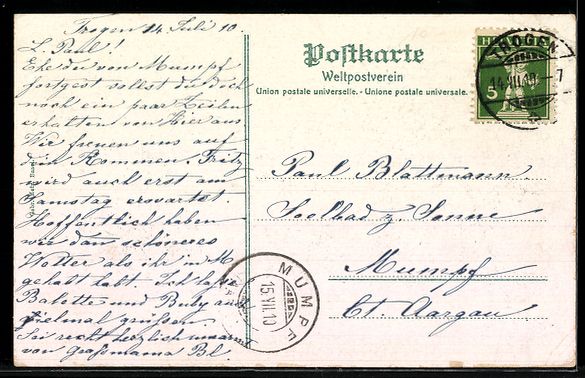 Trogen 14 Juli 10.
L. Paul!
Ehe du von Mumpf
fortgest sollst du doch
noch ein paar Zeilen
erhalten von Hier aus
Wir freuen uns auf
dein Kommen. Fritz
wird auch erst am
Samstag erwartet.
Hoffentlich haben
wir dan schöneres
Wetter als ihr in M.
gehabt habt. Ich lasse
Babette und Buby auch
vielmal grüssen.
Sei recht herzlich umarmt
von Grossmama Bl.
Postkarte
Weltpostverein
Union postale universelle. - Unione postale universale.
TROGEN
14.VII.10.-7
5
Paul Blattmann
Soolbad z. Sonne
Mumpf
Ct. Aargau
MUMPF
15.VII.10